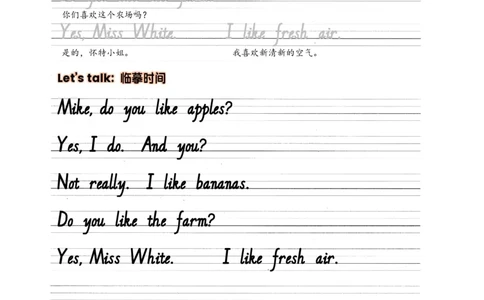 你们喜欢这个农场吗?
Yes, Miss White. I like fresh air.
是的，怀特小姐。 我喜欢新清新的空气。
Let's talk: 临摹时间
Mike, do you like apples?
Yes, I do. And you?
Not really. I like bananas.
Do you like the farm?
Yes, Miss White. I like fresh air.